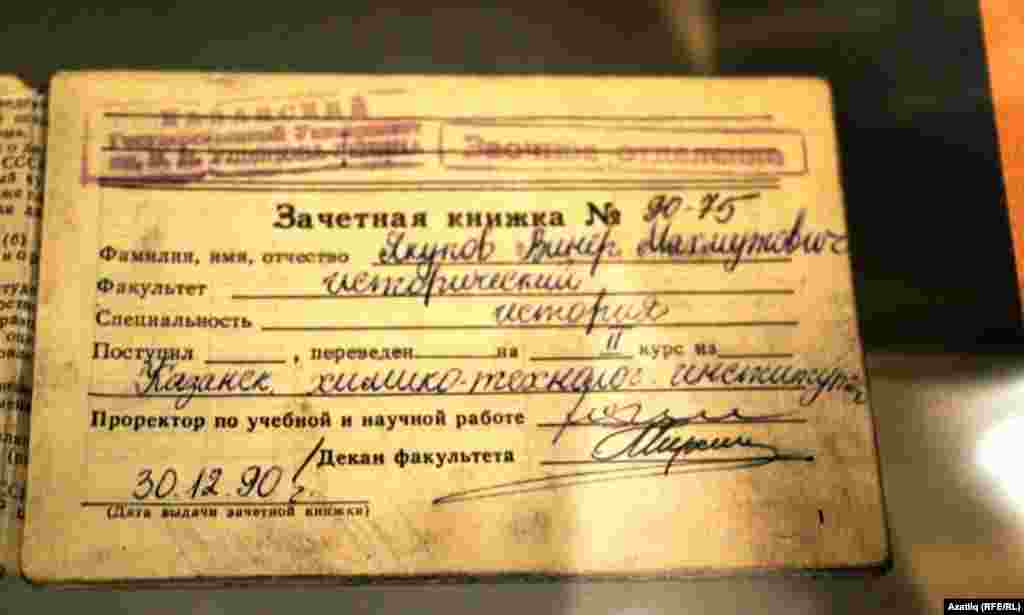 КАЗАНСКИЙ
Государственный Университет
им. В. И. Ульянова-Ленина
Заочное отделение
Зачетная книжка № 90-75
Фамилия, имя, отчество Якупов Винер Махмутович
Факультет исторический
Специальность история
Поступил , переведен на II курс на
Казанск. химико-технолог. институт
Проректор по учебной и научной работе
Декан факультета
30.12.90 г.
(Дата выдачи зачетной книжки)
Azatliq (RFE/RL)